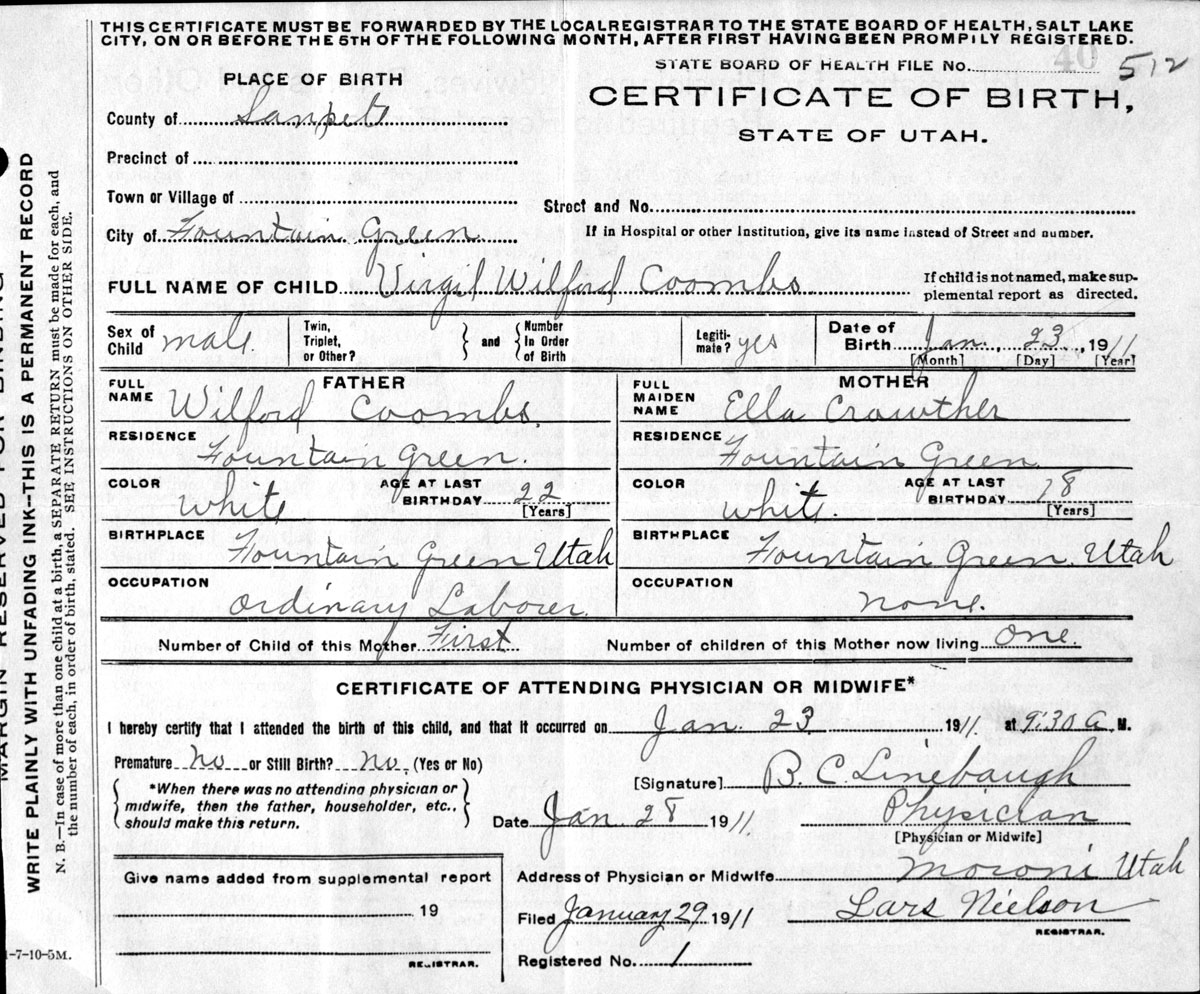 THIS CERTIFICATE MUST BE FORWARDED BY THE LOCAL REGISTRAR TO THE STATE BOARD OF HEALTH, SALT LAKE
CITY, ON OR BEFORE THE 5TH OF THE FOLLOWING MONTH, AFTER FIRST HAVING BEEN PROMPILY REGISTERED.
STATE BOARD OF HEALTH FILE NO. 40 512
PLACE OF BIRTH
CERTIFICATE OF BIRTH,
STATE OF UTAH.
County of Sanpete
Precinct of
Town or Village of
Street and No.
City of Fountain Green
If in Hospital or other Institution, give its name instead of Street and number.
FULL NAME OF CHILD Virgil Wilford Coombs
If child is not named, make sup-
plemental report as directed.
Sex of Child male
Twin, Triplet, or Other?
and
Number In Order of Birth
Legiti-mate? yes
Date of Birth Jan. 23, 1911
[Month] [Day] [Year]
FATHER
FULL NAME Wilford Coombs.
MOTHER
FULL MAIDEN NAME Ella Crowther
RESIDENCE Fountain Green.
RESIDENCE Fountain Green
COLOR White
AGE AT LAST BIRTHDAY 22
[Years]
COLOR White.
AGE AT LAST BIRTHDAY 18
[Years]
BIRTHPLACE Fountain Green Utah
BIRTHPLACE Fountain Green, Utah
OCCUPATION Ordinary Laborer.
OCCUPATION none.
Number of Child of this Mother First
Number of children of this Mother now living one.
CERTIFICATE OF ATTENDING PHYSICIAN OR MIDWIFE*
I hereby certify that I attended the birth of this child, and that it occurred on Jan. 23 1911. at 9:30 A. M.
Premature No or Still Birth? No. (Yes or No)
[Signature] B. C. Linebaugh
*When there was no attending physician or
midwife, then the father, householder, etc.,
should make this return.
Date Jan. 28 1911.
Physician
[Physician or Midwife]
Address of Physician or Midwife Moroni Utah
Give name added from supplemental report
19
REGISTRAR.
Filed January 29 1911
Lars Nielson
REGISTRAR.
Registered No. 1
MARGIN RESERVED FOR BINDING
WRITE PLAINLY WITH UNFADING INK-THIS IS A PERMANENT RECORD
N. B.—In case of more than one child at a birth, a SEPARATE RETURN must be made for each, and
the number of each, in order of birth, stated. SEE INSTRUCTIONS ON OTHER SIDE.
-7-10-5M.